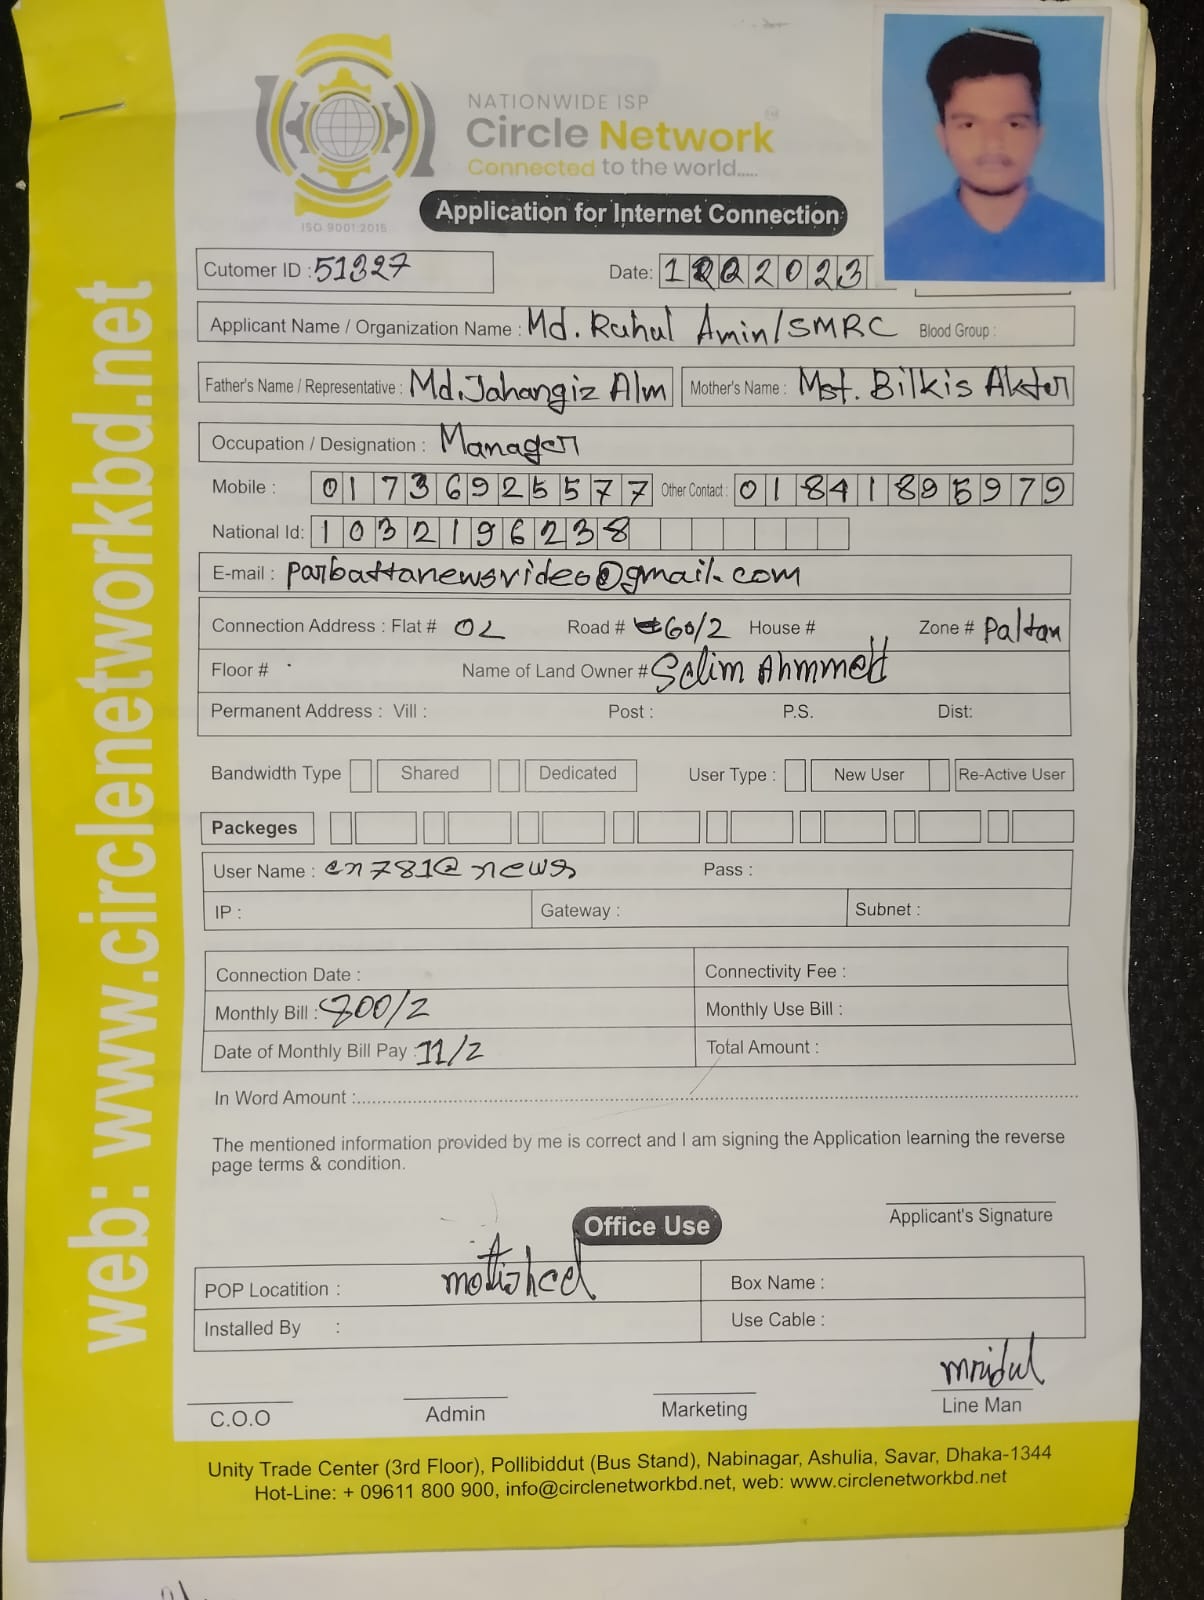 NATIONWIDE ISP
Circle Network
Connected to the world.....
ISO 9001:2015
Application for Internet Connection
web: www.circlenetworkbd.net
Cutomer ID : 51327 Date: 2023
Applicant Name / Organization Name : Md. Ruhul Amin/SMRC Blood Group :
Father's Name / Representative : Md. Jahangir Alm Mother's Name : Mst. Bilkis Akter
Occupation / Designation : Manager
Mobile : 01736925577 Other Contact : 01841895979
National Id: 1032196238
E-mail : parbattanewsvideo@gmail.com
Connection Address : Flat # Road # 60/2 House # Zone # Paltan
Floor # Name of Land Owner # Selim Ahmmed
Permanent Address : Vill : Post : P.S. Dist:
Bandwidth Type Shared Dedicated User Type : New User Re-Active User
Packeges
User Name : cn781@news Pass :
IP : Gateway : Subnet :
Connection Date : Connectivity Fee :
Monthly Bill : 800/2 Monthly Use Bill :
Date of Monthly Bill Pay : 11/2 Total Amount :
In Word Amount :
The mentioned information provided by me is correct and I am signing the Application learning the reverse
page terms & condition.
Applicant's Signature
Office Use
POP Locatition : motijheel Box Name :
Installed By : Use Cable :
mridul
C.O.O Admin Marketing Line Man
Unity Trade Center (3rd Floor), Pollibiddut (Bus Stand), Nabinagar, Ashulia, Savar, Dhaka-1344
Hot-Line: + 09611 800 900, info@circlenetworkbd.net, web: www.circlenetworkbd.net